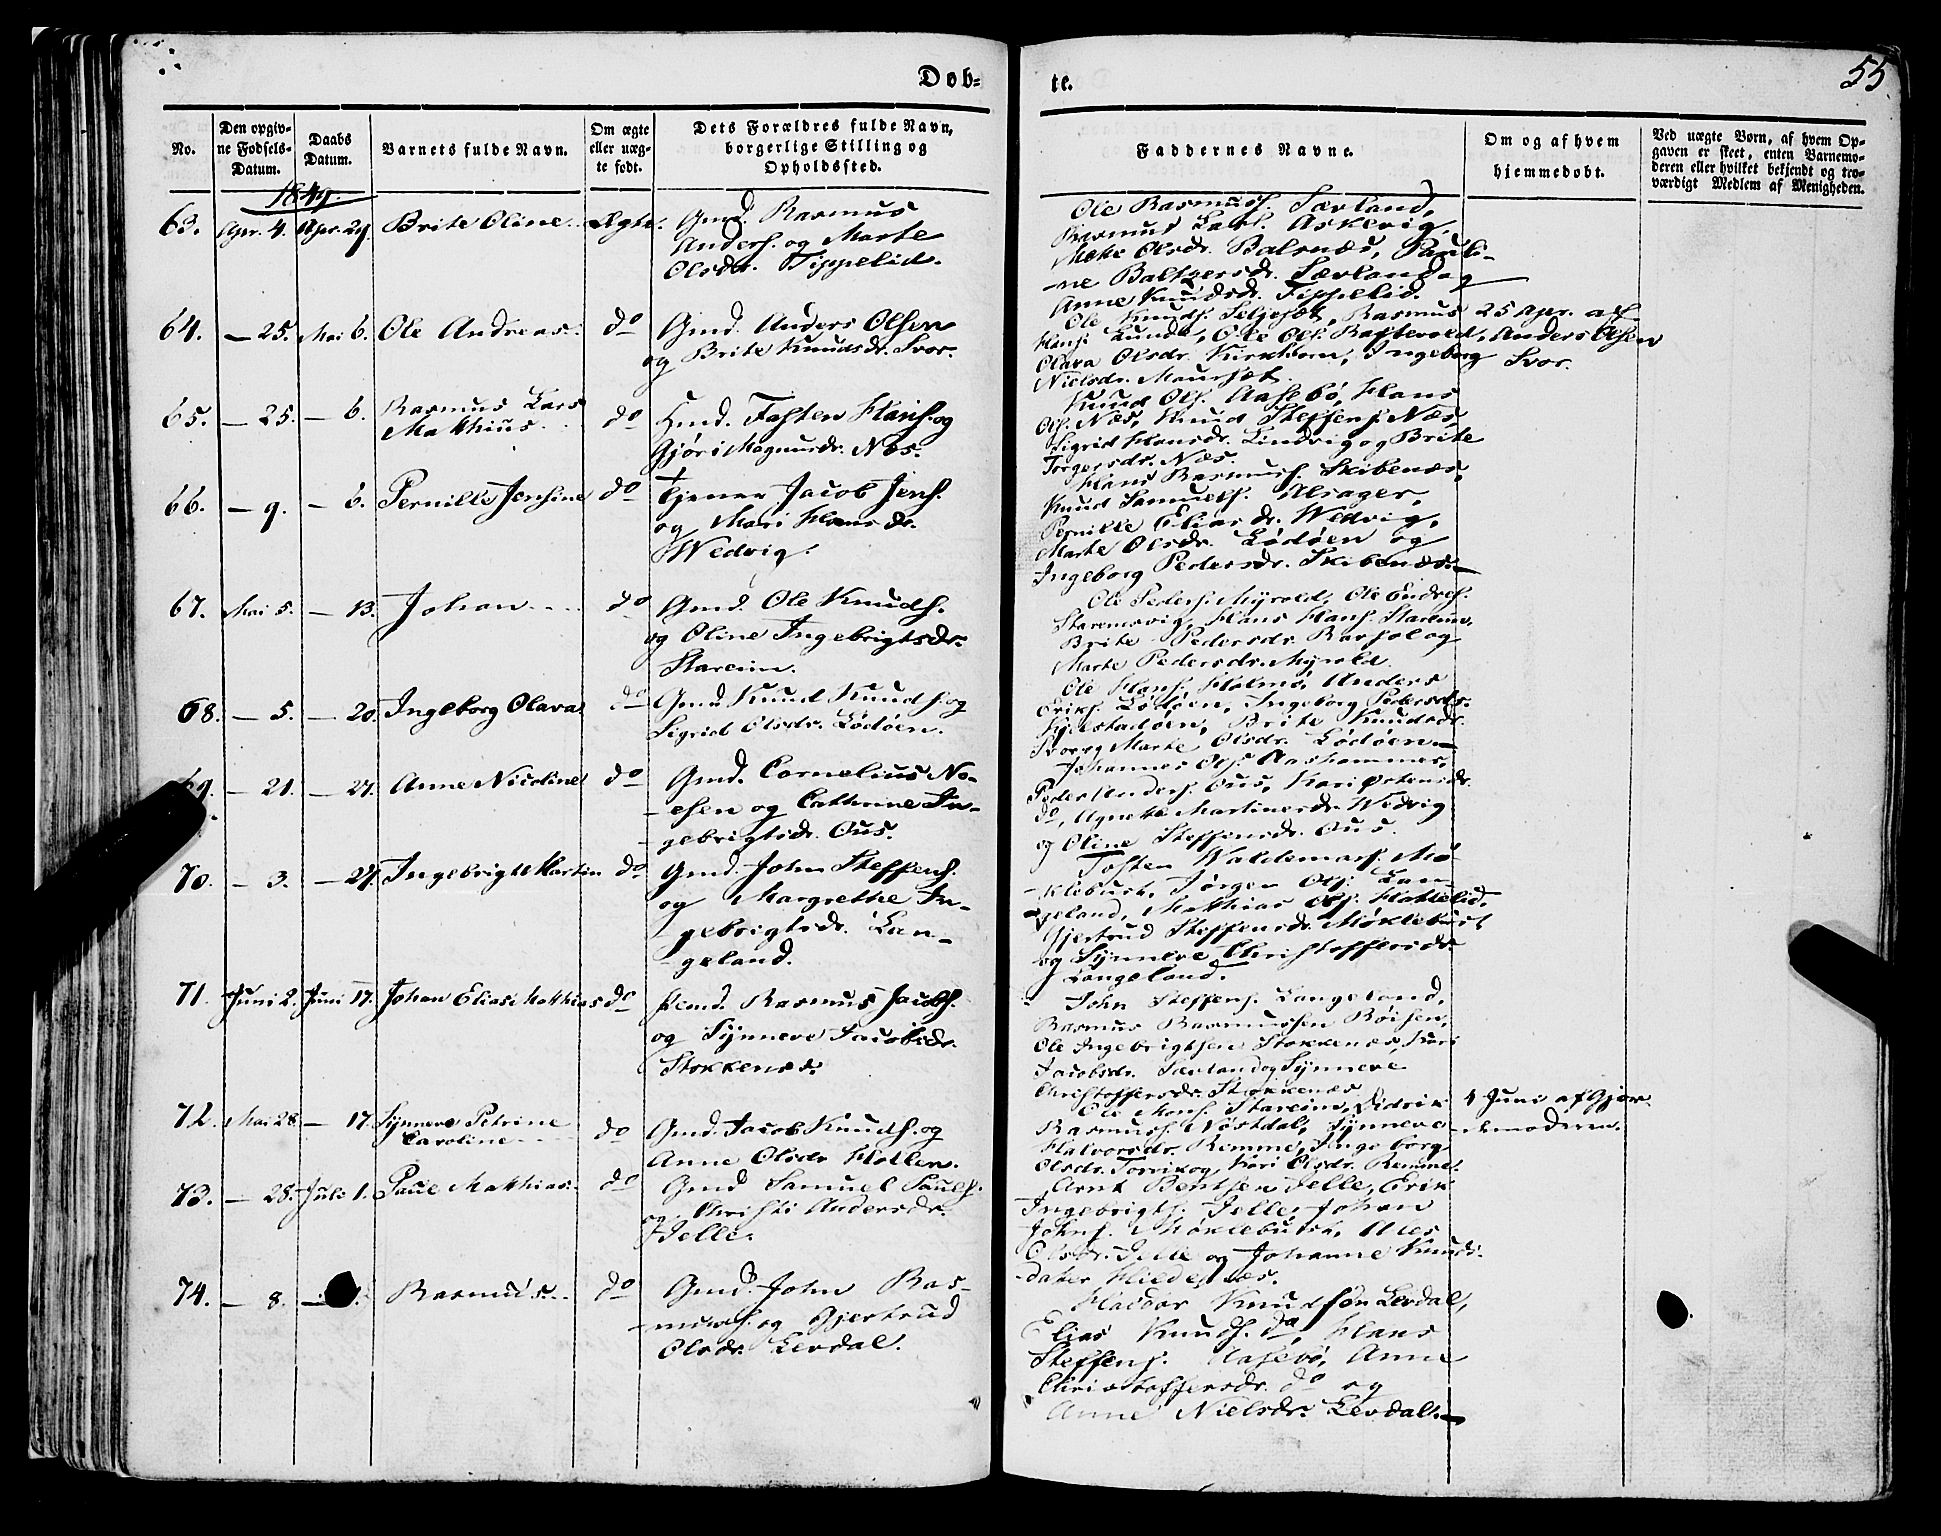 Døb-
te.
55
No.
Den opgiv-
ne Fødsels-
Datum.
Daabs
Datum.
Barnets fulde Navn.
Om ægte
eller uæg-
te født.
Dets Forældres fulde Navn,
borgerlige Stilling og
Opholdssted.
Faddernes Navne.
Om og af hvem
hjemmedøbt.
Ved uægte Børn, af hvem Op-
gaven er skeet, enten Barnemo-
deren eller hvilket bekjendt og tro-
værdigt Medlem af Menigheden.
1849.
63. Apr. 4. Apr. 29. Brite Oline Ægte. Gmd. Rasmus
Anders. og Marte
Olsdr. Tippelid.
Ole Rasmuss. Sævland,
Rasmus Lars. Askevig,
Mette Olsdr. Balsnæs, Pauli-
ne Baltzersdr. Sævland og
Anne Knudsdr. Tippelid.
64. — 25. Mai 6. Ole Andreas. do Gmd. Anders Olsen
og Brite Knudsdr. Svor.
Ole Knuds. Seljesæt, Rasmus
Hans. Lunde, Ole Ols. Raftevold,
Olava Olsdr. Kirkhorn, Ingeborg
Nielsdr. Maursæt.
25 Apr. af
Anders Olsen
Svor.
65. — 25. — 6. Rasmus Lars
Matthias. do Hmd. Tosten Hans. og
Gjøri Magnusdr. Næs.
Knud Ols. Aasebø, Hans
Ols. Næs, Knud Steffens. Næs,
Sigrid Hansdr. Lindvig og Brite
Torgersdr. Næs.
66. — 9. — 6. Pernille Jensine do Tjener Jacob Jens.
og Mari Hansdr.
Wedvig.
Hans Rasmuss. Skibenæs,
Knud Samuels. Alsager,
Pernille Eliasdr. Wedvig,
Marte Olsdr. Lødøen og
Ingeborg Pedersdr. Skibenæs.
67. Mai 5. — 13. Johan do Gmd. Ole Knuds.
og Oline Ingebrigtsdr.
Stareim.
Ole Peders. Myrold, Ole Endres.
Staremsvig, Hans Hans. Stareim,
Brite Pedersdr. Ravsol og
Marte Pedersdr. Myrold.
68. — 5. — 20. Ingeborg Olava. do Gmd. Knud Knuds. og
Sigrid Olsdr. Lødøen.
Ole Hans. Holmø, Anders
Eriks. Lødøen, Ingeborg Pedersdr.
Brite Knudsdr.
Svor og Marte Olsdr. Lødøen.
69. — 21. — 27. Anne Nicoline do Gmd. Cornelius No-
esen og Cathrine In-
gebrigtsdr. Ous.
Johannes Ols. Aashammer,
Peder Anders. Ous, Kari Østensdr.
do, Agnethe Martinusdr. Wedvig
og Oline Steffensdr. Ous.
70. — 3. — 27. Ingebrigt Martin do Gmd. John Steffens.
og Margrethe In-
gebrigtsdr. Lan-
geland.
Tosten Waldemars. Mø-
klebust, Jørgen Ols. Lan-
geland, Matthias Ols. Hattelid,
Gjertrud Steffensdr. Møklebust
og Synneve Christoffersdr.
Langeland.
71. Juni 2. Juni 17. Johan Elias Matthias do Hmd. Rasmus Jacobs.
og Synneve Jacobsdr.
Stokkenæs.
John Steffens. Langeland,
Rasmus Rasmussen Røisen,
Ole Ingebrigtsen Stokkenæs, Kari
Jacobsdr. Sævland og Synneve
Christoffersdr. Stokkenæs.
72. Mai 28. — 17. Synneve Petrine
Caroline do Gmd. Jacob Knuds. og
Anne Olsdr. Hatlen.
Ole Mons. Stareim, Didrik
Rasmuss. Nøstdal, Synneve
Halvorsdr. Remme, Ingeborg
Olsdr. Torvik og Kari Olsdr. Remme.
4 Juni af Gjor-
demoderen.
73. — 28. Juli 1. Paul Matthias. do Gmd. Samuel Pauls.
og Christi Andersdr.
Jelle.
Arnt Bentsen Jelle, Erik
Ingebrigts. Jelle, Johan
Johns. Møklebust, Ales
Olsdr. Jelle og Johanne Knuds-
dater Hildenæs.
74. — 8. — Rasmus. do Gmd. John Ras-
muss. og Gjertrud
Olsdr. Levdal.
Haldor Knudsøn Levdal,
Elias Knuds. do, Hans
Steffens. Aasebø, Anne
Christoffersdr. do og
Anne Nielsdr. Levdal.